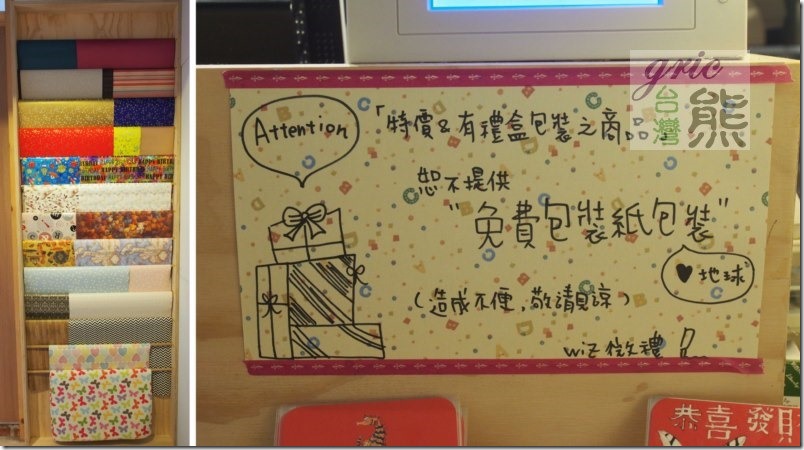 HAPPY BIRTHDAY
gric
台灣熊
Attention
「特價&有禮盒包裝之商品」
恕不提供
"免費包裝紙包裝"
♥地球
(造成不便,敬請見諒)
wiz 微禮
恭喜發